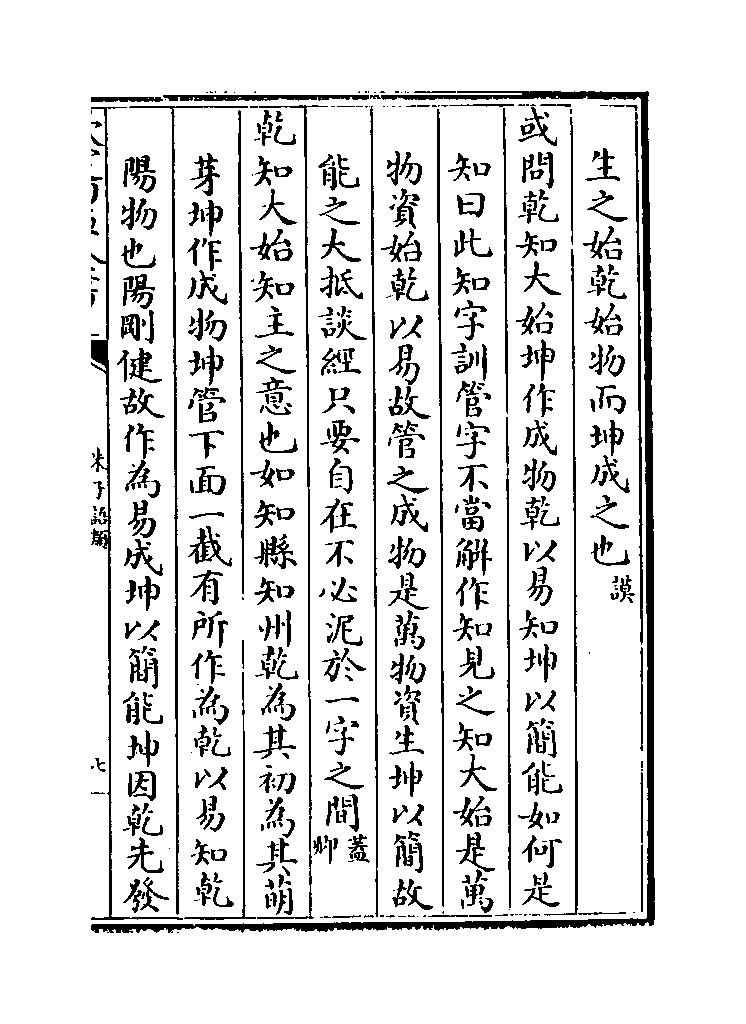 生之始乾始物而坤成之也謨
或問乾知大始坤作成物乾以易知坤以簡能如何是
知曰此知字訓管字不當解作知見之知大始是萬
物資始乾以易故管之成物是萬物資生坤以簡故
能之大抵談經只要自在不必泥於一字之間蓋卿
乾知大始知主之意也如知縣知州乾為其初為其萌
芽坤作成物坤管下面一截有所作為乾以易知乾
陽物也陽剛健故作為易成坤以簡能坤因乾先發
朱子語類